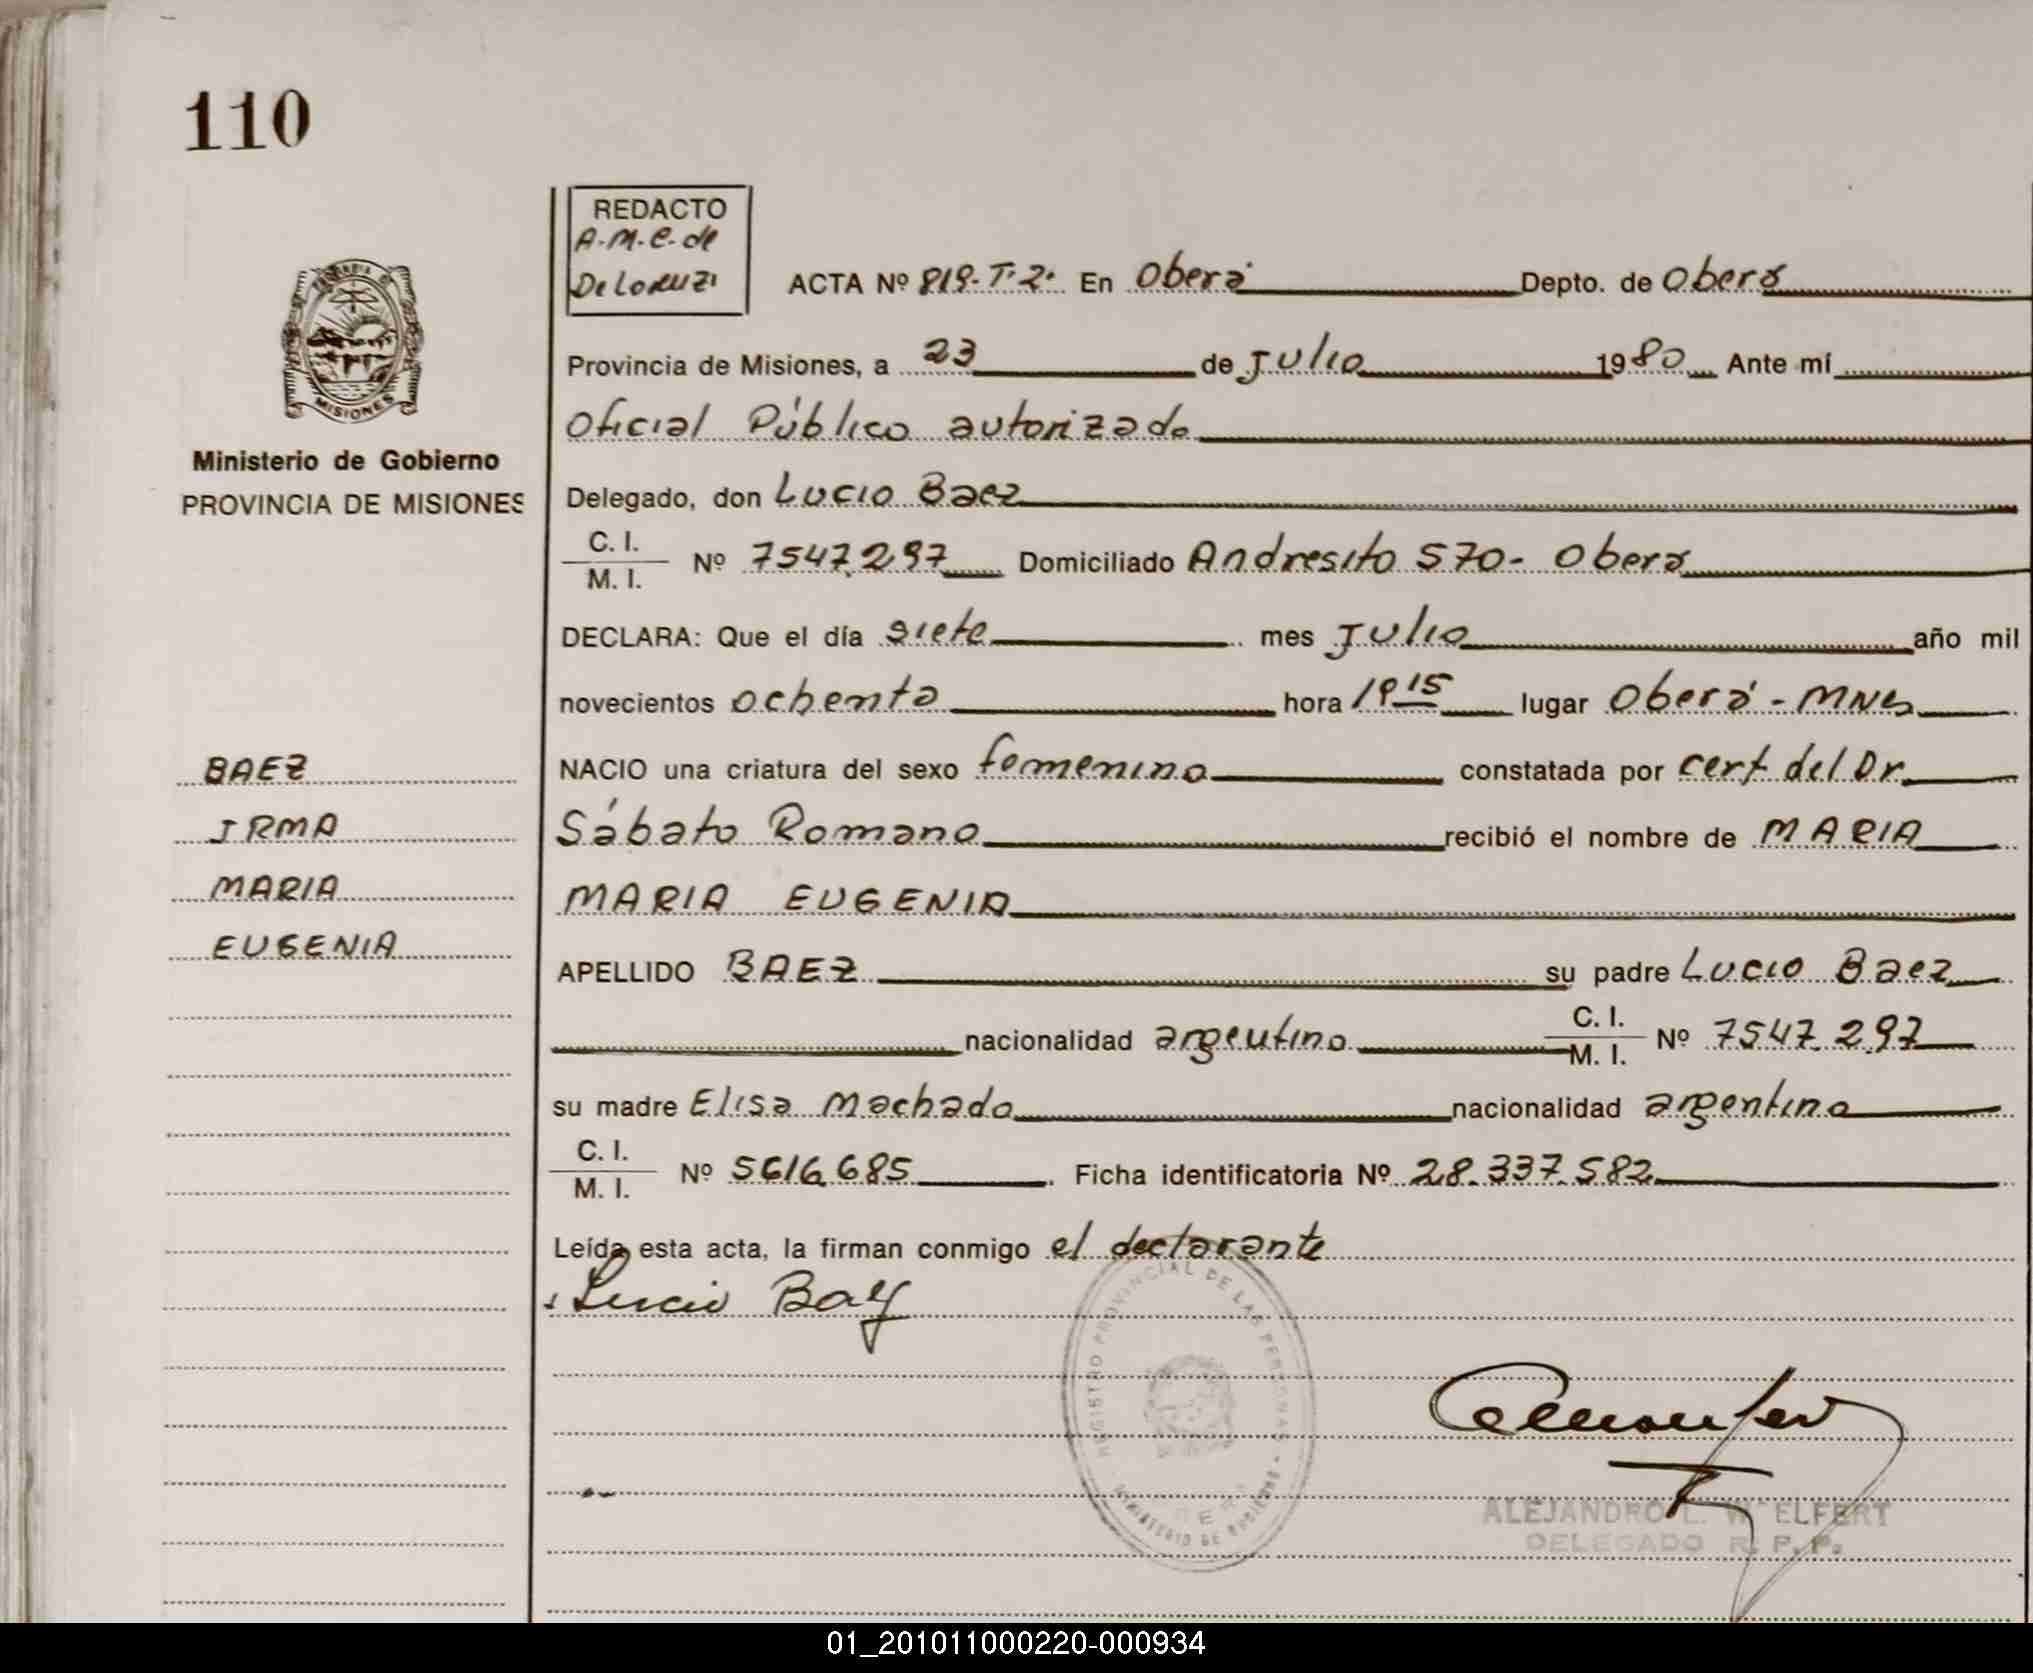 110
REDACTO
A.M.C. de
De Lorenzi
ACTA Nº 819-T.2. En Oberá Depto. de Oberá
Provincia de Misiones, a 23 de Julio 1980 Ante mí
Oficial Público autorizado
MISIONES
Ministerio de Gobierno
PROVINCIA DE MISIONES
Delegado, don Lucio Baez
C. I. / M. I. Nº 7547.297 Domiciliado Andresito 570- Oberá
DECLARA: Que el día siete mes Julio año mil
novecientos ochenta hora 19 15 lugar Oberá - MNES
NACIO una criatura del sexo femenino constatada por cert. del Dr.
Sábato Romano recibió el nombre de MARIA
MARIA EUGENIA
APELLIDO BAEZ su padre Lucio Baez
nacionalidad argentino C. I. / M. I. Nº 7547.297
su madre Elisa Machado nacionalidad argentina
C. I. / M. I. Nº 5616.685. Ficha identificatoria Nº 28.337.582
Leída esta acta, la firman conmigo el declarante
Lucio Baez
BAEZ
IRMA
MARIA
EUGENIA
REGISTRO PROVINCIAL DE LAS PERSONAS
MINISTERIO DE GOBIERNO
ALEJANDRO L. W. ELFERT
DELEGADO R. P. P.
01_201011000220-000934